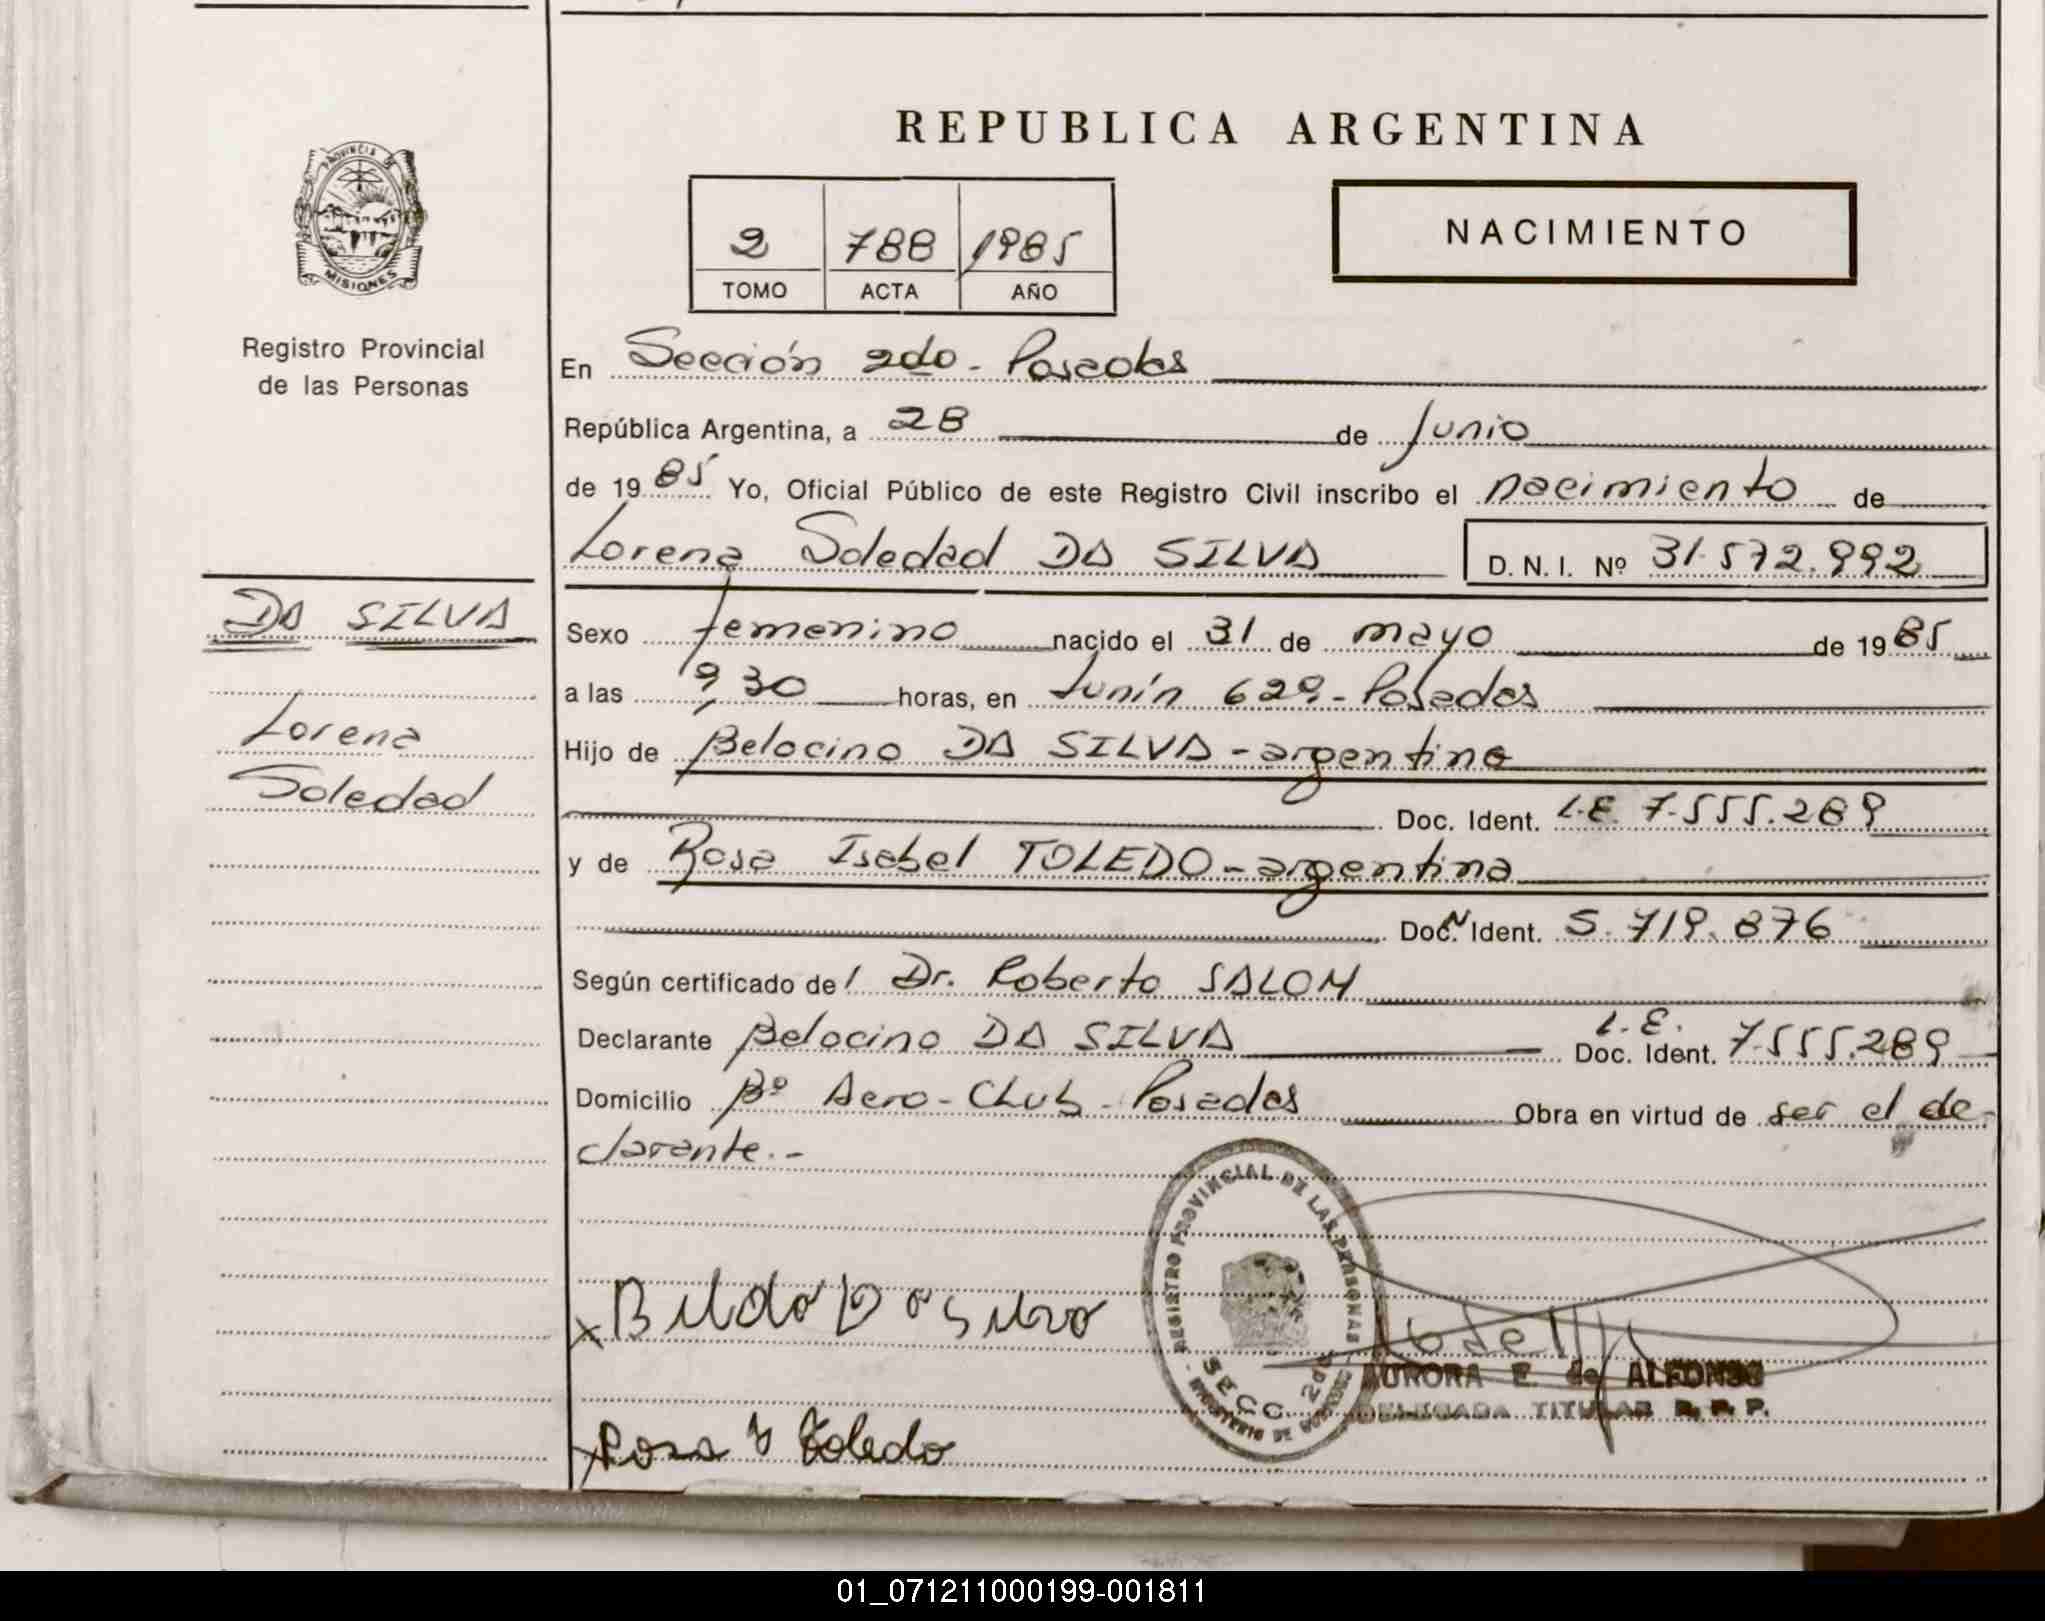 REPUBLICA ARGENTINA
PROVINCIA DE
MISIONES
Registro Provincial
de las Personas
2 788 1985
TOMO ACTA AÑO
NACIMIENTO
En Sección 2da - Posadas
República Argentina, a 28 de Junio
de 1985 Yo, Oficial Público de este Registro Civil inscribo el nacimiento de
Lorena Soledad DA SILVA D. N. I. Nº 31.572.992
DA SILVA
Lorena
Soledad
Sexo femenino nacido el 31 de mayo de 1985
a las 9,30 horas, en Junín 629.- Posadas
Hijo de Belocino DA SILVA - argentino
Doc. Ident. L.E. 7.555.289
y de Rosa Isabel TOLEDO - argentina
Doc. Ident. 5.719.876
Según certificado del Dr. Roberto SALOM
Declarante Belocino DA SILVA L.E. Doc. Ident. 7.555.289
Domicilio Bº Aero-Club - Posadas Obra en virtud de ser el de-
clarante.-
REGISTRO PROVINCIAL DE LAS PERSONAS
SECC. 2da
x Da Silva
AURORA E. de ALFONSO
DELEGADA TITULAR R. P. P.
x Rosa Y Toledo
01_071211000199-001811